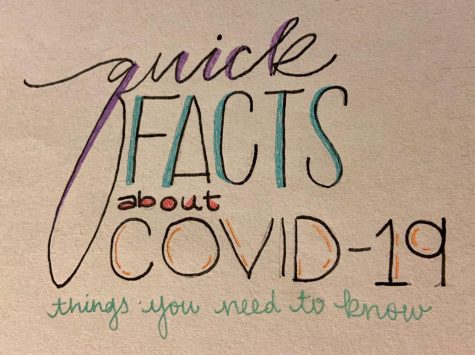 quick
FACTS
about
COVID-19
things you need to know